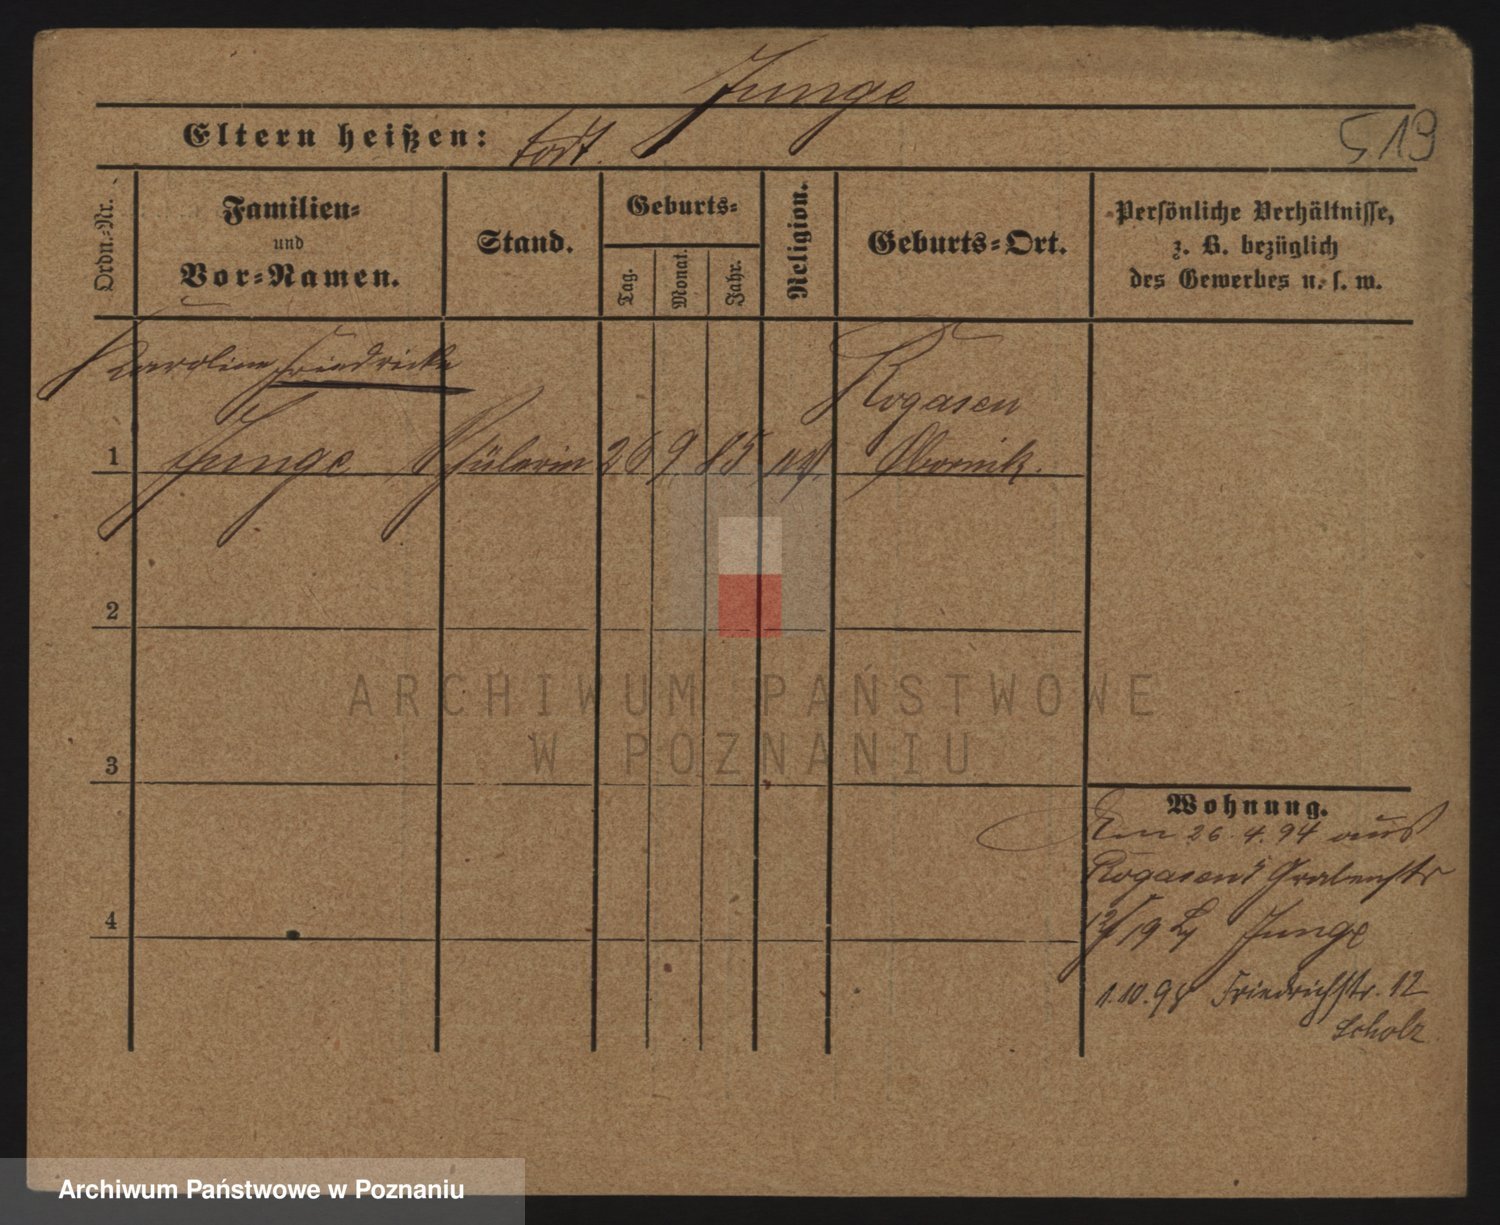 Junge
Eltern heißen: todt.
519
Ordn.-Nr.
Familien-
und
Vor-Namen.
Stand.
Geburts-
Tag.
Monat.
Jahr.
Religion.
Geburts-Ort.
Persönliche Verhältnisse,
z. B. bezüglich
des Gewerbes u. s. w.
Karoline Friedricke
Rogasen
1 Junge Schülerin 26 9 85 Obornik.
2
3
4
Wohnung.
Am 26.4.94 aus
Rogasen Grabenstr
12/19 Junge
1.10.98 Friedrichstr. 12
Scholz
ARCHIWUM PAŃSTWOWE
W POZNANIU
Archiwum Państwowe w Poznaniu